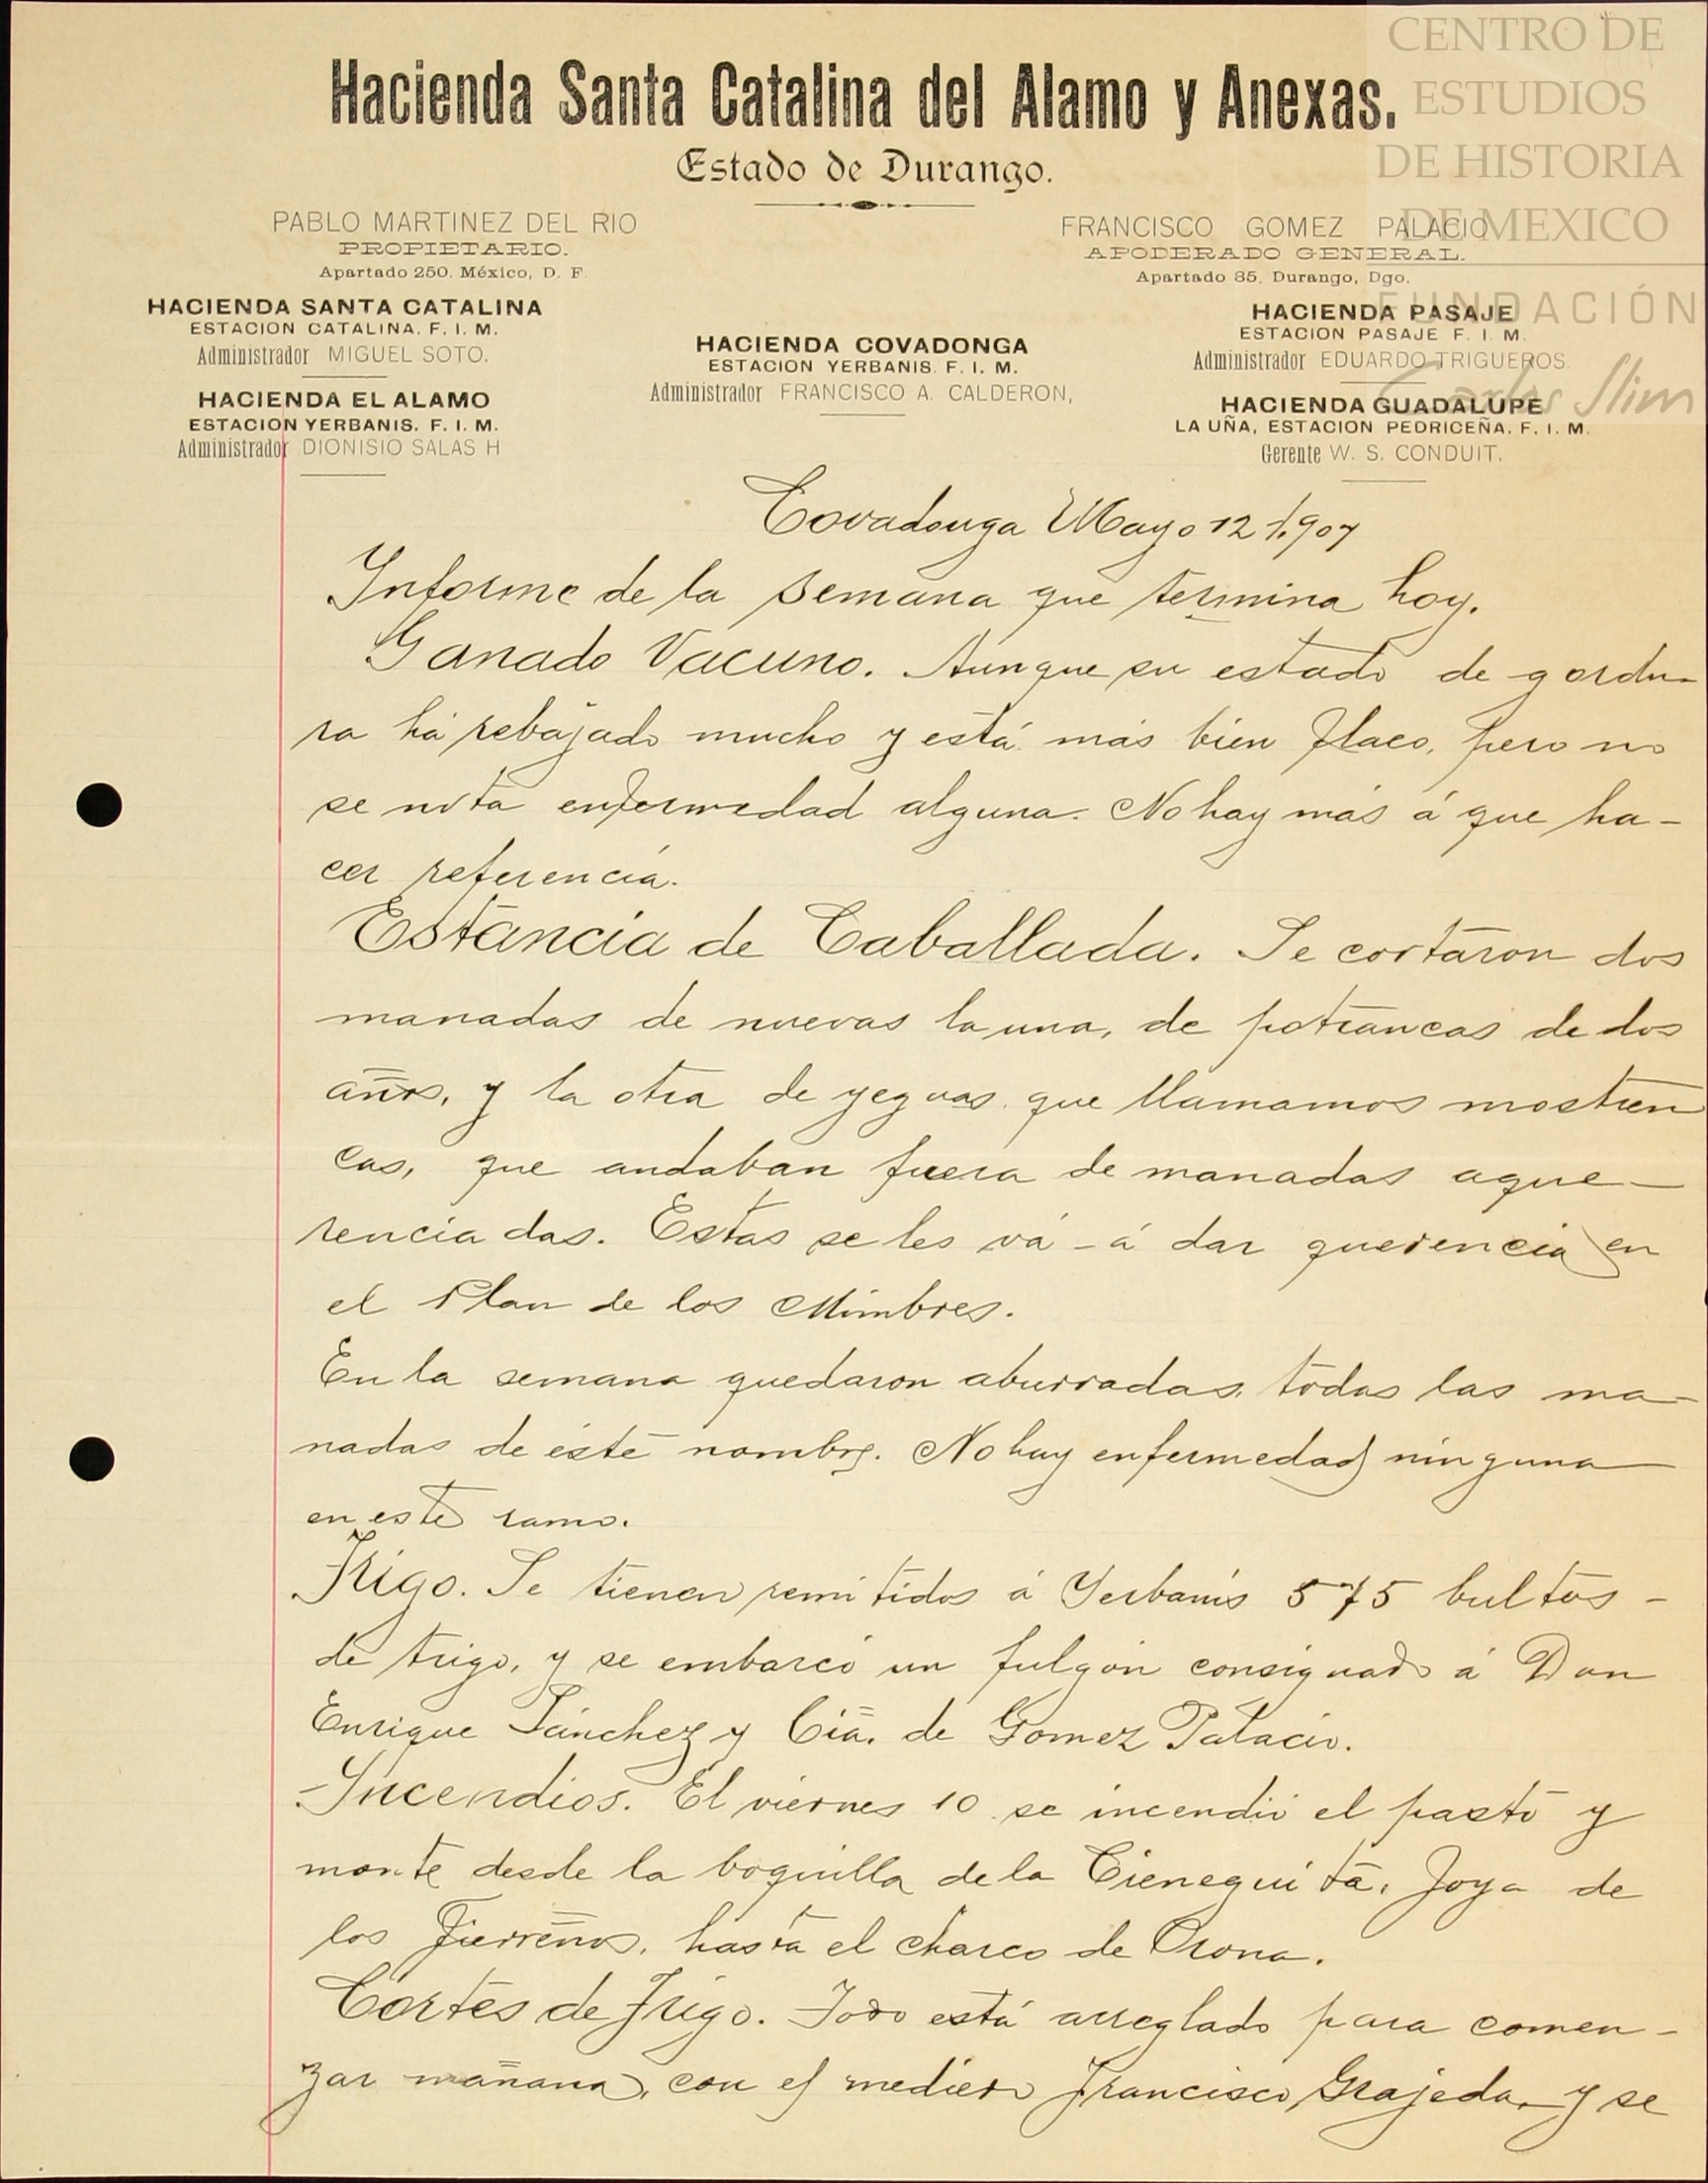 CENTRO DE
ESTUDIOS
DE HISTORIA
DE MEXICO
FUNDACIÓN
Carlos Slim
Hacienda Santa Catalina del Alamo y Anexas.
Estado de Durango.
PABLO MARTINEZ DEL RIO
PROPIETARIO.
Apartado 250. México, D. F.
FRANCISCO GOMEZ PALACIO
APODERADO GENERAL.
Apartado 35, Durango, Dgo.
HACIENDA SANTA CATALINA
ESTACION CATALINA. F. I. M.
Administrador MIGUEL SOTO.
HACIENDA EL ALAMO
ESTACION YERBANIS. F. I. M.
Administrador DIONISIO SALAS H
HACIENDA COVADONGA
ESTACION YERBANIS. F. I. M.
Administrador FRANCISCO A. CALDERON,
HACIENDA PASAJE
ESTACION PASAJE F. I. M.
Administrador EDUARDO TRIGUEROS.
HACIENDA GUADALUPE
LA UÑA, ESTACION PEDRICEÑA. F. I. M.
Gerente W. S. CONDUIT.
Covadonga Mayo 12 1.907
Informe de la semana que termina hoy.
Ganado Vacuno. Aunque su estado de gordu-
ra há rebajado mucho y está más bien flaco, pero no
se nota enfermedad alguna. No hay más á que ha-
cer referencia.
Estancia de Caballada. Se cortaron dos
manadas de nuevas la una, de potrancas de dos
años, y la otra de yeguas que llamamos mostren
cas, que andaban fuera de manadas aque-
renciadas. Estas se les vá - á dar querencia en
el Plan de los Mimbres.
En la semana quedaron aburradas todas las ma-
nadas de éste nombre. No hay enfermedad ninguna
en este ramo.
Trigo. Se tienen remitidos á Yerbanís 575 bultos -
de trigo, y se embarcó un fulgón consignado á Don
Enrique Sánchez y Cia. de Gomez Palacio.
Incendios. El viernes 10 se incendió el pasto y
monte desde la boquilla de la Cieneguita, Joya de
los Fierreños, hasta el charco de Orona.
Cortes de Trigo. Todo está arreglado para comen-
zar mañana, con el mediero Francisco Grajeda, y se